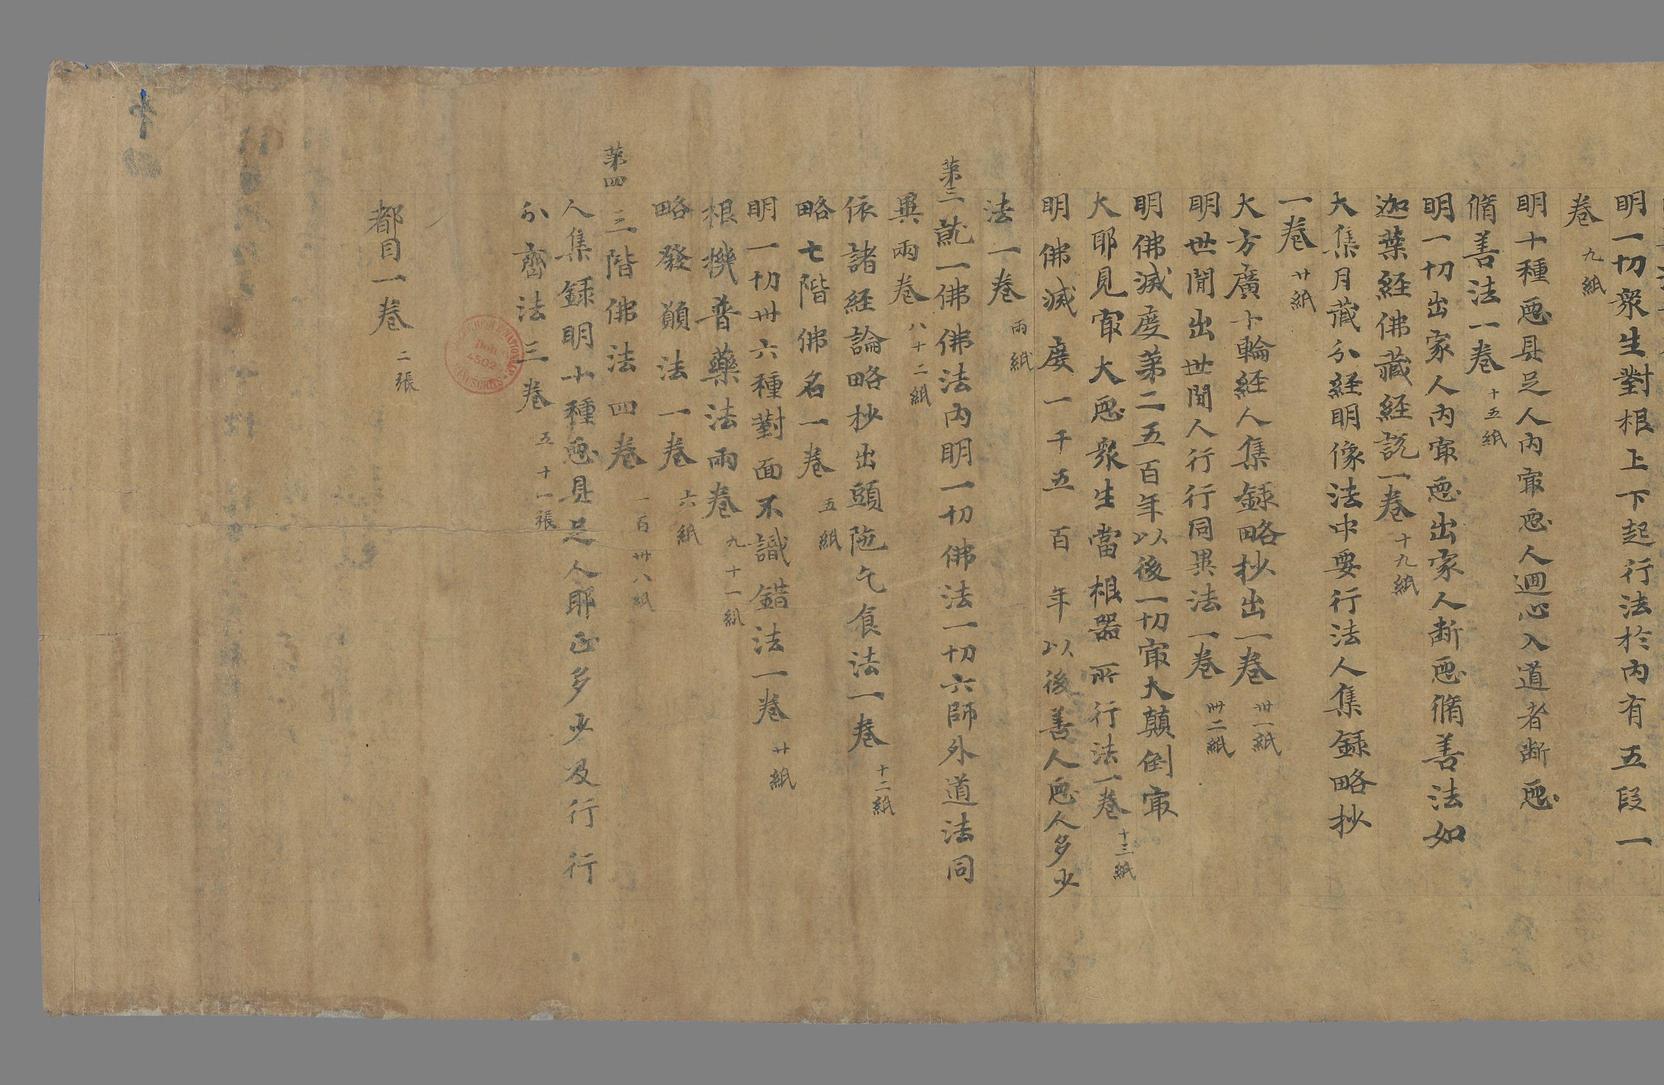 明一切衆生對根上下起行法於內有五段一
卷 九紙
明十種惡具足人內㝡惡人迴心入道者斷惡
脩善法一卷 十五紙
明一切出家人內㝡惡出家人斷惡脩善法如
迦葉經佛藏經說一卷 十九紙
大集月藏分經明像法中要行法人集録略抄
一卷 廿紙
大方廣十輪経人集録略抄出一卷 卅一紙
明世間出世間人行行同異法一卷 卅二紙
明佛滅度第二五百年以後一切㝡大顛倒㝡
大耶見㝡大惡衆生當根器所行法一卷 十三紙
明佛滅度一千五百年以後善人惡人多少
法一卷 兩紙
第三 就一佛佛法內明一切佛法一切六師外道法同
異兩卷 八十二紙
依諸経論略抄出頭陁乞食法一卷 十二紙
略七階佛名一卷 五紙
明一切卅六種對面不識錯法一卷 廿紙
根機普藥法兩卷 九十一紙
略發願法一卷 六紙
第四 三階佛法四卷 一百卌八紙
人集録明十種惡具足人耶正多少及行行
分齊法三卷 五十一張
都目一卷 二張
Doh
4502